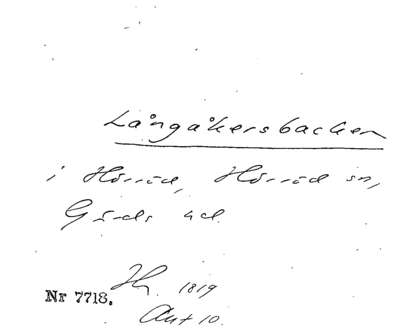 Långåkersbacken
i Hörröd, Hörröd sn,
Gärds hd.
Nr 7718.
1819
Akt 10.